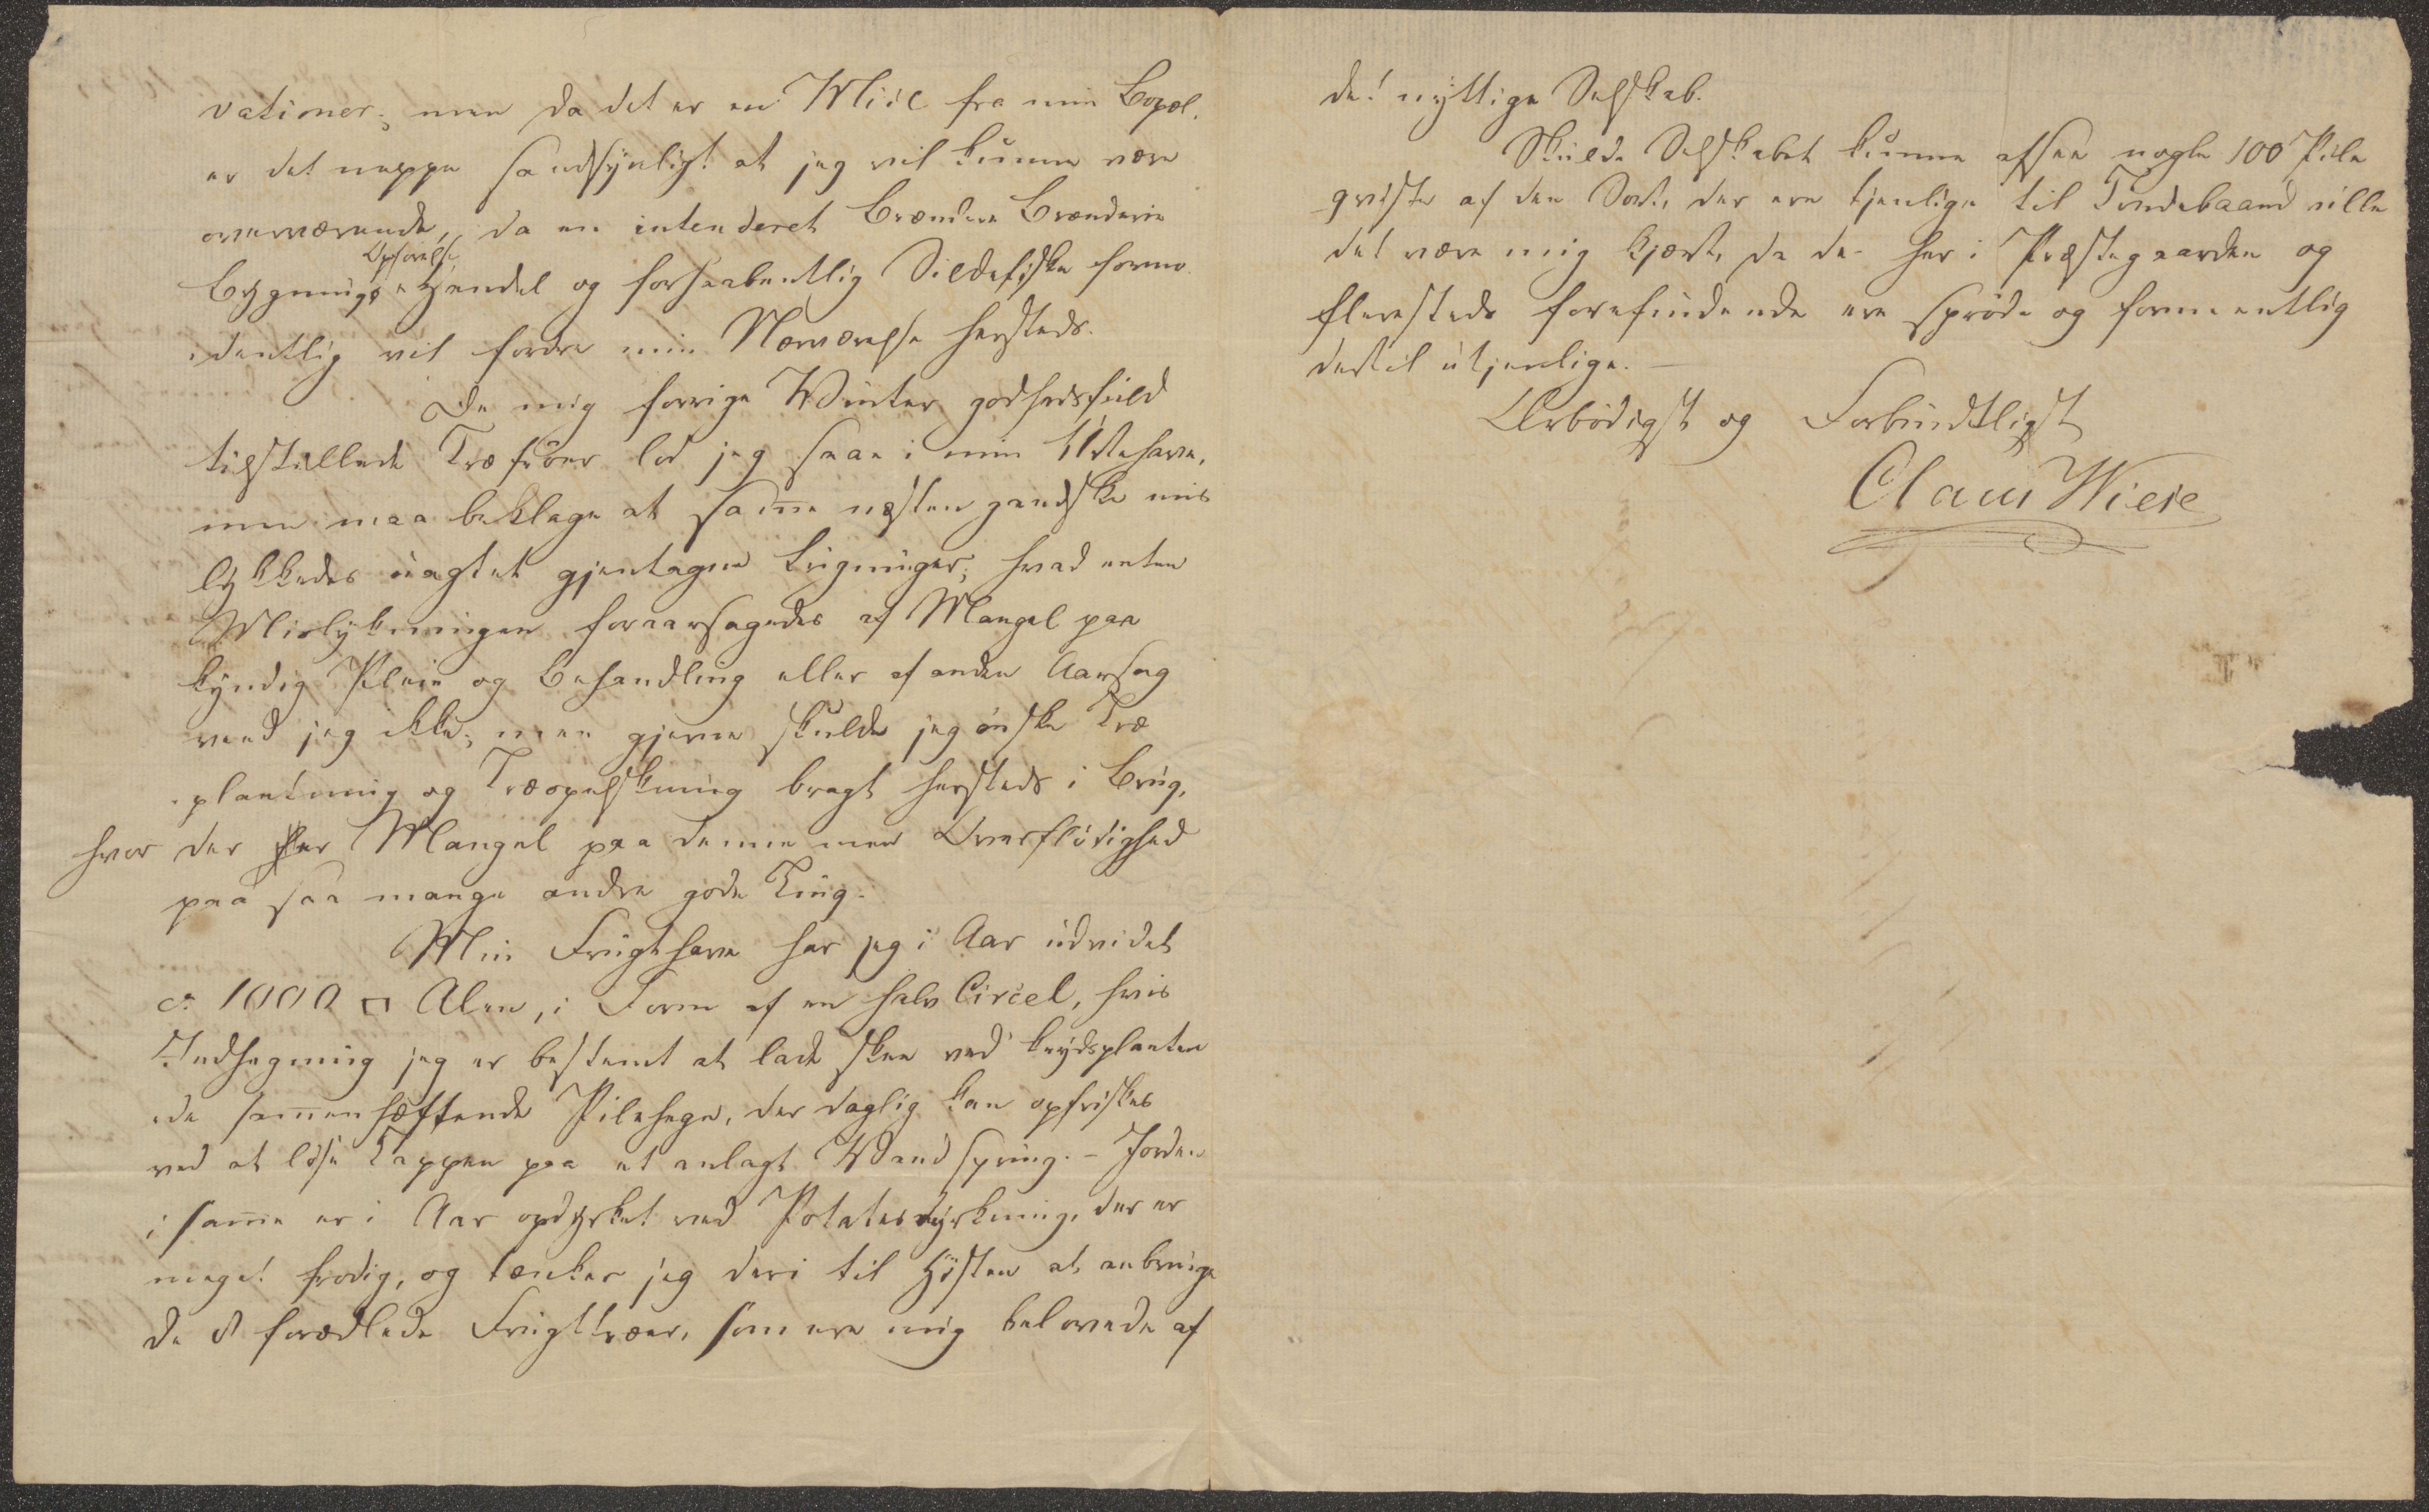 vationer; men da det er en Miil fra min Bopæl,
er det neppe sandsynligt at jeg vil kunne være
overværende, da en intenderet Brænderie
Bygnings Opførelse, Handel og forhaabentlig Sildefiske formo
dentlig vil fordre min Nærværelse hersteds.
De mig forrige Winter godhedsfuld
tilstillede Træfröer lod jeg saae i min Urtehave,
men maa beklage at samme næsten gandske mis
lykkedes uagtet gjentagne Lugninger; hvad enten
Mislykningen foraarsagedes af Mangel paa
kyndig Pleie og Behandling eller af anden Aarsag
veed jeg ikke; men gjerne skulde jeg önske Træ
plantning og Træopelskning bragt hersteds i Brug,
hvor der er Mangel paa denne men Overflödighed
paa saa mange andre gode Ting.
Min Frugthave har jeg i Aar udvidet
ca 1000 □ Alen, i Form af en halv Circel, hvis
Indhegning jeg er bestemt at lade skee ved krydsplanten
de sammenhæftende Pilehegn, der daglig kan opfriskes
ved at löse Tappen paa et anlagt Wandspring. - Jorden
i samme er i Aar opdyrket ved Potatesdyrkning, der er
meget frodig, og tænker jeg deri til Hösten at anbringe
de 8 forædlede Frugttræer, som ere mig belovede af
det nyttige Selskab.
Skulde Selskabet kunne afsee nogle 100 Pile
qviste af den Sort, der ere tjenlige til Töndebaand ville
det være mig kjært, da de her i Præstegaarden og
fleresteds forefindende ere spröde og formeentlig
dertil utjenlige. —
Ærbödigst og Forbindtligst
Claus Wiese